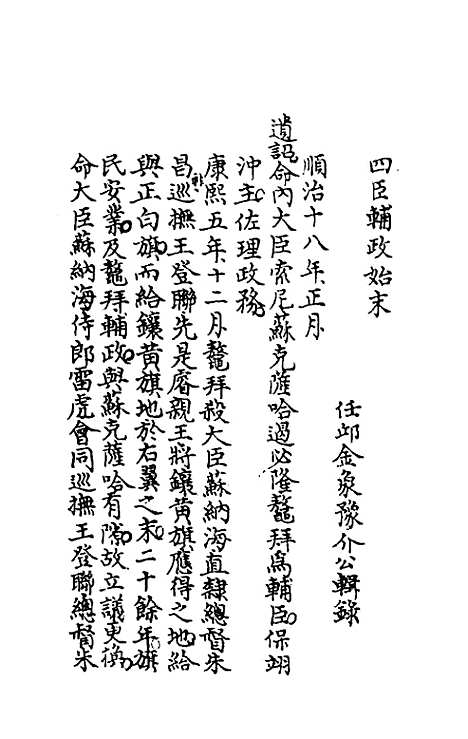 四臣輔政始末
任邱金象豫介公輯錄
順治十八年正月
遺詔命內大臣索尼蘇克薩哈遏必隆鰲拜為輔臣保翊
沖主佐理政務
康熙五年十二月鰲拜殺大臣蘇納海直隸總督朱
昌巡撫王登聯先是睿親王將鑲黃旗應得之地給
與正白旗而給鑲黃旗地於右翼之末二十餘年旗
民安業及鰲拜輔政與蘇克薩哈有隙故立議更換
命大臣蘇納海侍郎雷虎會同巡撫王登聯總督朱